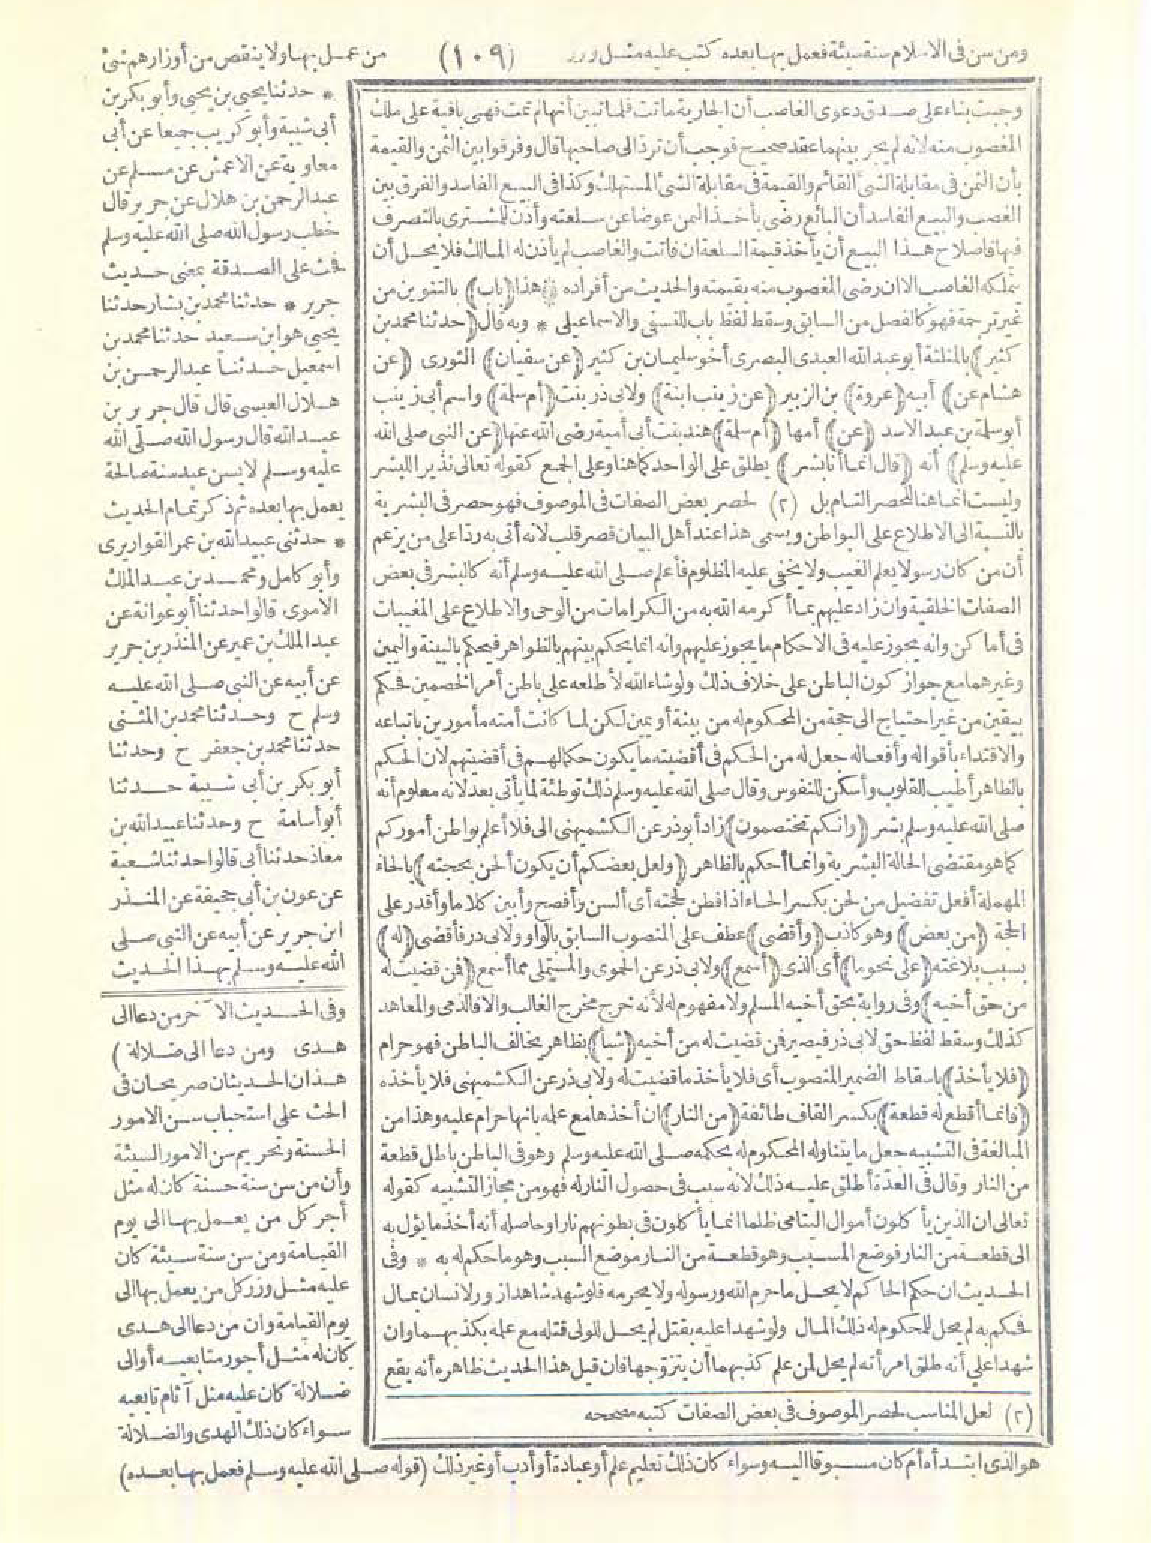 ومن سن فى الاسلام سنة سيئة فعمل بها بعده كتب عليه مثل وزر (١٠٩) من عمل بها ولا ينقص من أوزارهم شئ
وجبت بناء على صدق دعوى الغاصب أن الجارية ماتت فلما تبين أنها لم تمت فهى باقية على ملك
المغصوب منه لانه لم يجر بينهما عقد صحيح فوجب أن ترد الى صاحبها قال وفرقوا بين الثمن والقيمة
بأن الثمن فى مقابلة الشئ القائم والقيمة فى مقابلة الشئ المستهلك وكذا فى البيع الفاسد والفرق بين
الغصب والبيع الفاسد أن البائع رضى بأخذ الثمن عوضا عن سلعته وأذن للمشترى بالتصرف
فيها فاصلاح هذا البيع أن يأخذ قيمة السلعة ان فاتت والغاصب لم يأذن له المالك فلا يحل أن
يتملكه الغاصب الا ان رضى المغصوب منه بقيمته والحديث من أفراده ﴿ هذا (باب) بالتنوين من
غير ترجمة فهو كالفصل من السابق وسقط لفظ باب للنسفى والاسماعيلى * وبه قال (حدثنا محمد بن
كثير) بالمثلثة أبو عبد الله العبدى البصرى أخو سليمان بن كثير (عن سفيان) الثورى (عن
هشام عن) أبيه (عروة) بن الزبير (عن زينب ابنة) ولابى ذر بنت (أم سلمة) واسم أبى زينب
أبو سلمة بن عبد الاسد (عن) أمها (أم سلمة) هند بنت أبى أمية رضى الله عنها (عن النبى صلى الله
عليه وسلم) أنه (قال انما أنا بشر) يطلق على الواحد كما هنا وعلى الجمع كقوله تعالى نذيرا للبشر
وليست انما هنا للحصر التام بل (٢) لحصر بعض الصفات فى الموصوف فهو حصر فى البشرية
بالنسبة الى الاطلاع على البواطن ويسمى هذا عند أهل البيان قصر قلب لانه أتى به ردا على من يزعم
أن من كان رسولا يعلم الغيب ولا يخفى عليه المظلوم فأعلم صلى الله عليه وسلم أنه كالبشر فى بعض
الصفات الخلقية وان زاد عليهم بما أكرمه الله به من الكرامات من الوحى والاطلاع على المغيبات
فى أماكن وانه يجوز عليه فى الاحكام ما يجوز عليهم وانه انما يحكم بينهم بالظواهر فيحكم بالبينة واليمين
وغيرهما مع جواز كون الباطن على خلاف ذلك ولو شاء الله لأطلعه على باطن أمر الخصمين فحكم
بيقين من غير احتياج الى حجة من المحكوم له من بينة أو يمين لكن لما كانت أمته مأمورين باتباعه
والاقتداء بأقواله وأفعاله جعل له من الحكم فى أقضيته ما يكون حكما لهم فى أقضيتهم لان الحكم
بالظاهر أطيب للقلوب وأسكن للنفوس وقال صلى الله عليه وسلم ذلك توطئة لما يأتى بعد لانه معلوم أنه
صلى الله عليه وسلم بشر (وانكم تختصمون) زاد أبو ذر عن الكشميهنى الى فلا أعلم بواطن أموركم
كما هو مقتضى الحالة البشرية وانما أحكم بالظاهر (ولعل بعضكم أن يكون ألحن بحجته) بالحاء
المهملة أفعل تفضيل من لحن بكسر الحاء اذا فطن لحجته أى ألسن وأفصح وأبين كلاما وأقدر على
الحجة (من بعض) وهو كاذب (وأقضى) عطف على المنصوب السابق بالواو ولابى ذر فأقضى (له)
بسبب بلاغته (على نحو ما) أى الذى (أسمع) ولابى ذر عن الحموى والمستملى مما أسمع (فمن قضيت له
من حق أخيه) وفى رواية بحق أخيه المسلم ولا مفهوم له لأنه خرج مخرج الغالب والا فالذمى والمعاهد
كذلك وسقط لفظ حق لابى ذر فيصير فمن قضيت له من أخيه (شيا) بظاهر يخالف الباطن فهو حرام
(فلا يأخذ) باسقاط الضمير المنصوب أى فلا يأخذ ما قضيت له ولابى ذر عن الكشميهنى فلا يأخذه
(فانما أقطع له قطعة) بكسر القاف طائفة (من النار) ان أخذها مع علمه بانها حرام عليه وهذا من
المبالغة فى التشبيه جعل ما يتناوله المحكوم له بحكمه صلى الله عليه وسلم وهو فى الباطن باطل قطعة
من النار وقال فى العدة أطلق عليه ذلك لانه سبب فى حصول النار له فهو من مجاز التشبيه كقوله
تعالى ان الذين يأكلون أموال اليتامى ظلما انما يأكلون فى بطونهم نارا وحاصله أنه أخذ ما يؤل به
الى قطعة من النار فوضع المسبب وهو قطعة من النار موضع السبب وهو ما حكم له به * وفى
الحديث ان حكم الحاكم لا يحل ما حرم الله ورسوله ولا يحرمه فلو شهد شاهدا زور لانسان بمال
فحكم به لم يحل للمحكوم له ذلك المال ولو شهدا عليه بقتل لم يحل للولى قتله مع علمه بكذبهما وان
شهدا على أنه طلق امرأته لم يحل لمن علم كذبهما أن يتزوجها فان قيل هذا الحديث ظاهره أنه يقع
(٢) لعل المناسب لحصر الموصوف فى بعض الصفات كتبه مصححه
* حدثنا يحيى بن يحيى وأبو بكر بن
أبى شيبة وأبو كريب جميعا عن أبى
معاوية عن الاعمش عن مسلم عن
عبد الرحمن بن هلال عن جرير قال
خطب رسول الله صلى الله عليه وسلم
فحث على الصدقة بمعنى حديث
جرير * حدثنا محمد بن بشار حدثنا
يحيى هو ابن سعيد حدثنا محمد بن
اسمعيل حدثنا عبد الرحمن بن
هلال العبسى قال قال جرير بن
عبد الله قال رسول الله صلى الله
عليه وسلم لا يسن عبد سنة صالحة
يعمل بها بعده ثم ذكر تمام الحديث
* حدثنى عبيد الله بن عمر القواريرى
وأبو كامل ومحمد بن عبد الملك
الاموى قالوا حدثنا أبو عوانة عن
عبد الملك بن عمير عن المنذر بن جرير
عن أبيه عن النبى صلى الله عليه
وسلم ح وحدثنا محمد بن المثنى
حدثنا محمد بن جعفر ح وحدثنا
أبو بكر بن أبى شيبة حدثنا
أبو أسامة ح وحدثنا عبيد الله بن
معاذ حدثنا أبى قالوا حدثنا شعبة
عن عون بن أبى جحيفة عن المنذر
ابن جرير عن أبيه عن النبى صلى
الله عليه وسلم بهذا الحديث
وفى الحديث الآخر من دعا الى
هدى ومن دعا الى ضلالة)
هذان الحديثان صريحان فى
الحث على استحباب سن الامور
الحسنة وتحريم سن الامور السيئة
وأن من سن سنة حسنة كان له مثل
أجر كل من يعمل بها الى يوم
القيامة ومن سن سنة سيئة كان
عليه مثل وزر كل من يعمل بها الى
يوم القيامة وان من دعا الى هدى
كان له مثل أجور متابعيه أو الى
ضلالة كان عليه مثل آثام تابعيه
سواء كان ذلك الهدى والضلالة
هو الذى ابتدأه أم كان مسبوقا اليه وسواء كان ذلك تعليم علم أو عبادة أو أدب أو غير ذلك (قوله صلى الله عليه وسلم فعمل بها بعده)